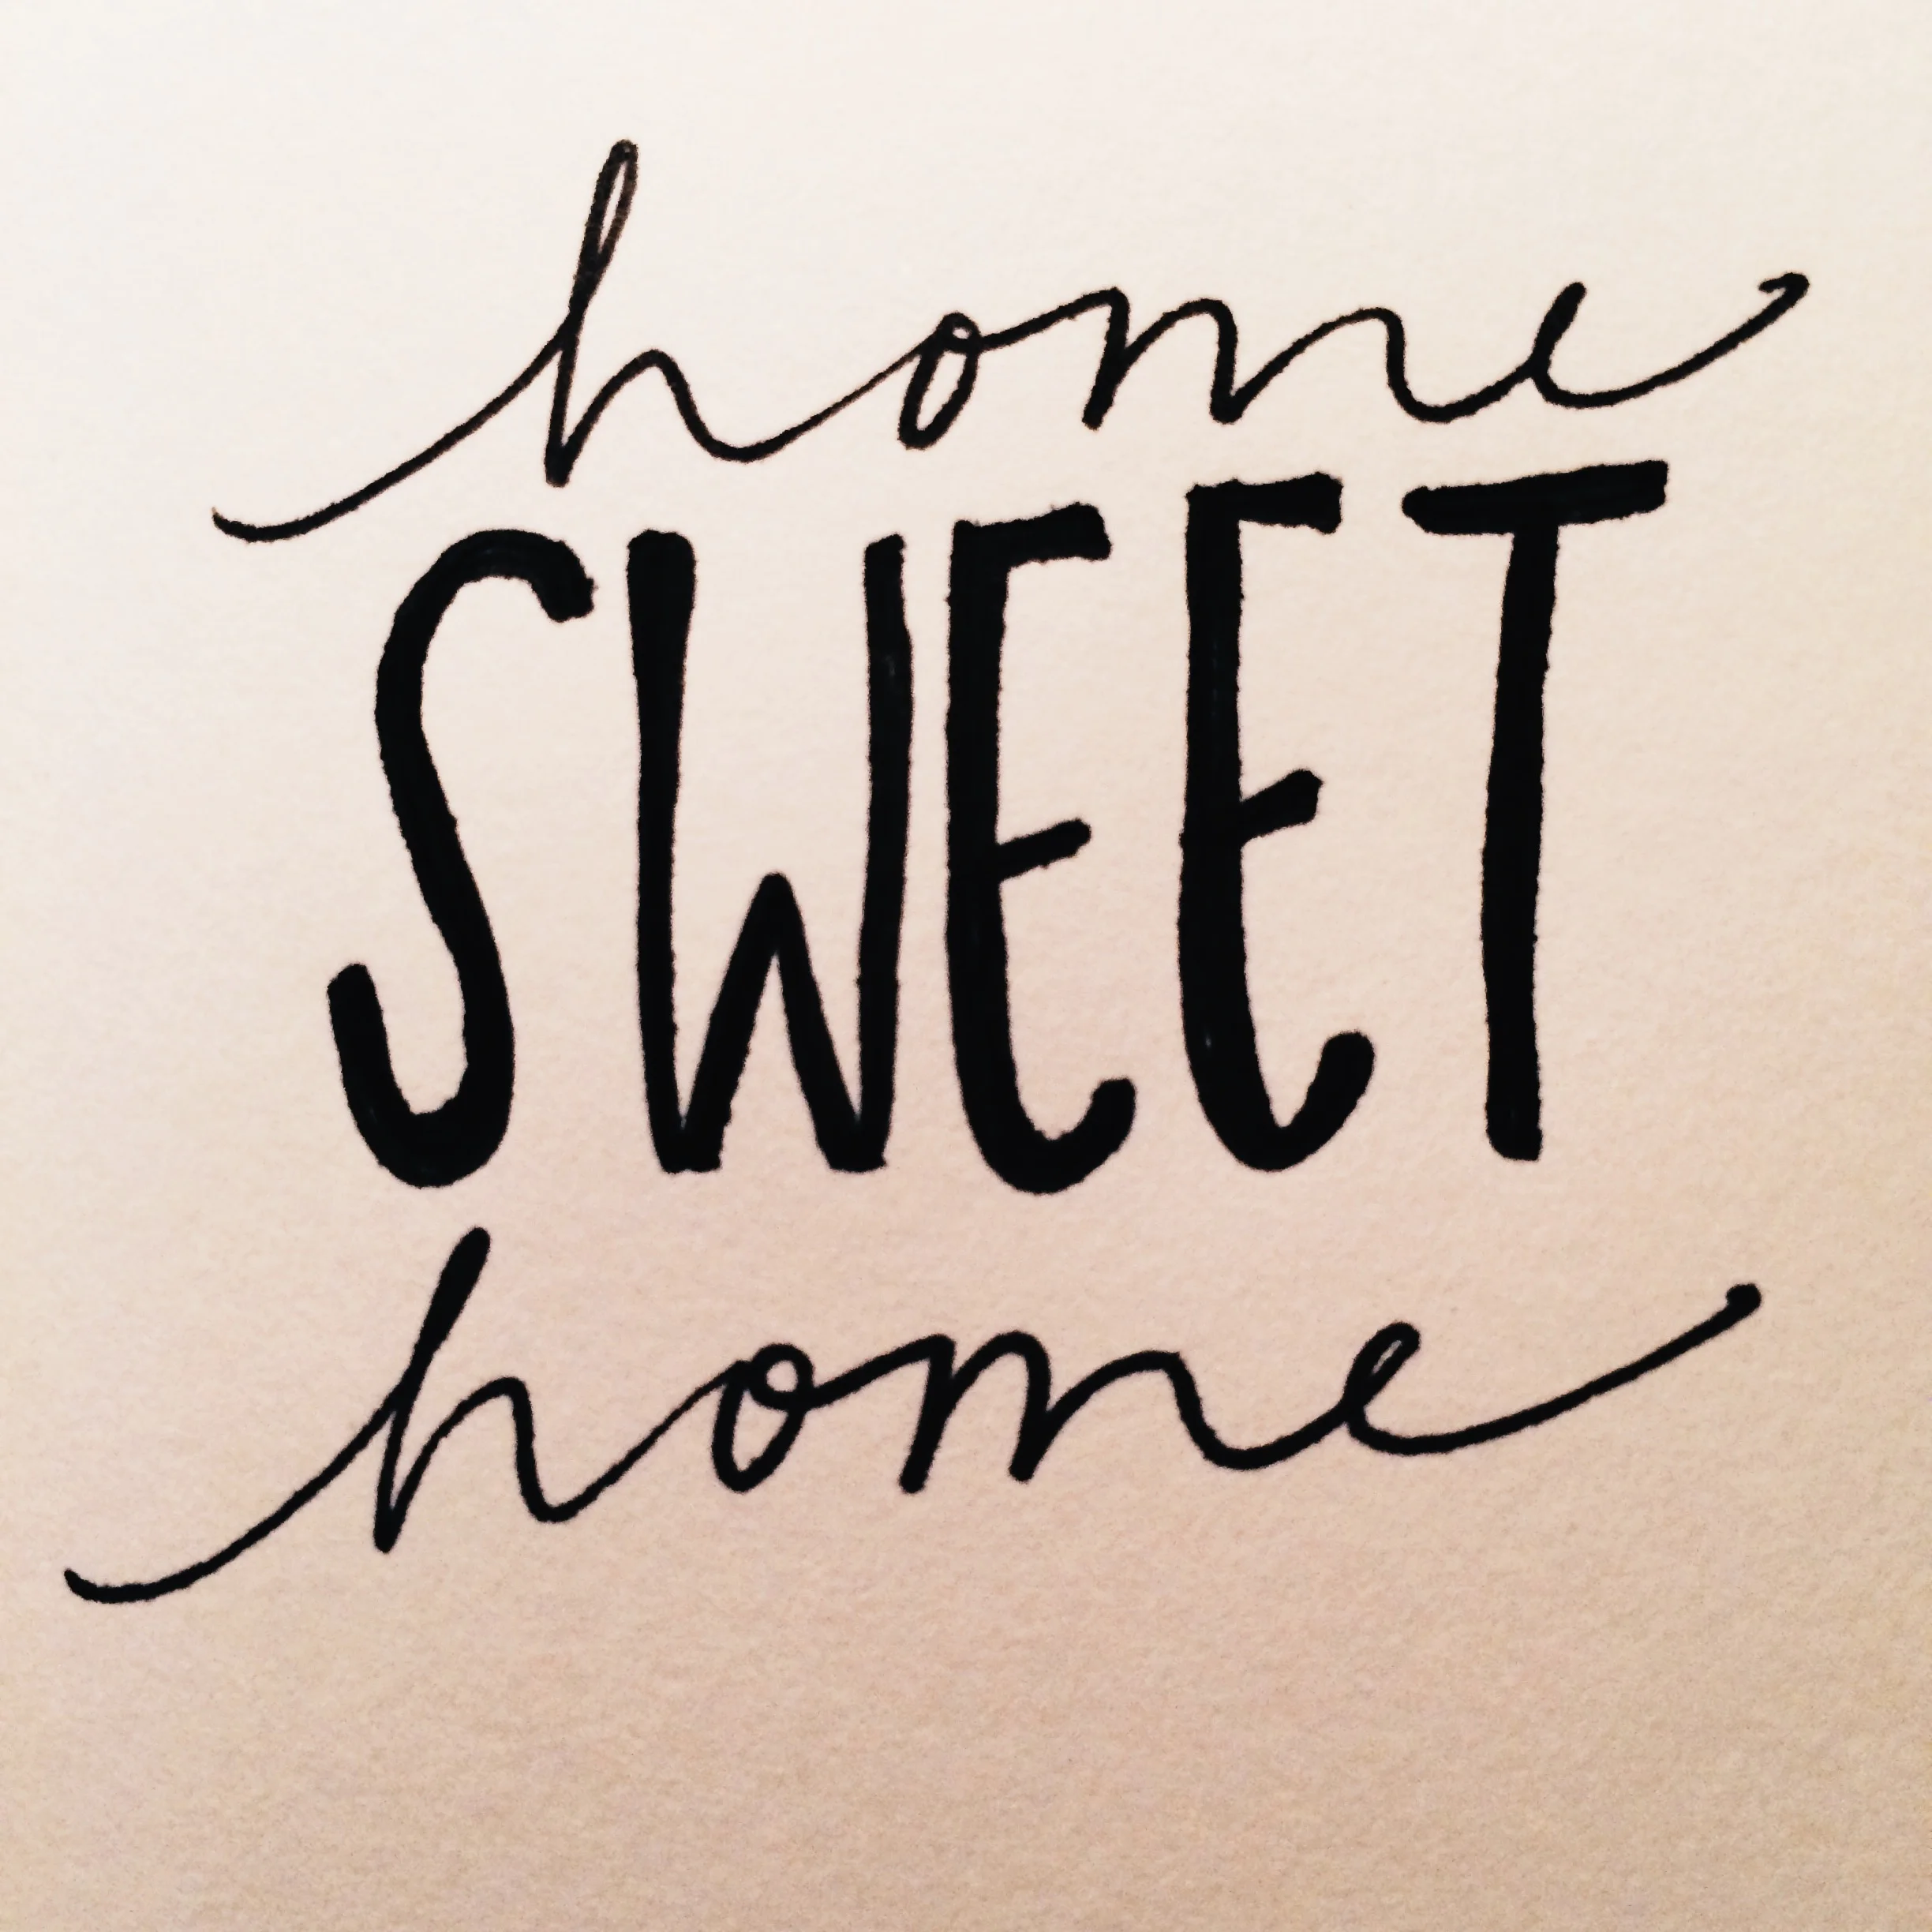 home
SWEET
home